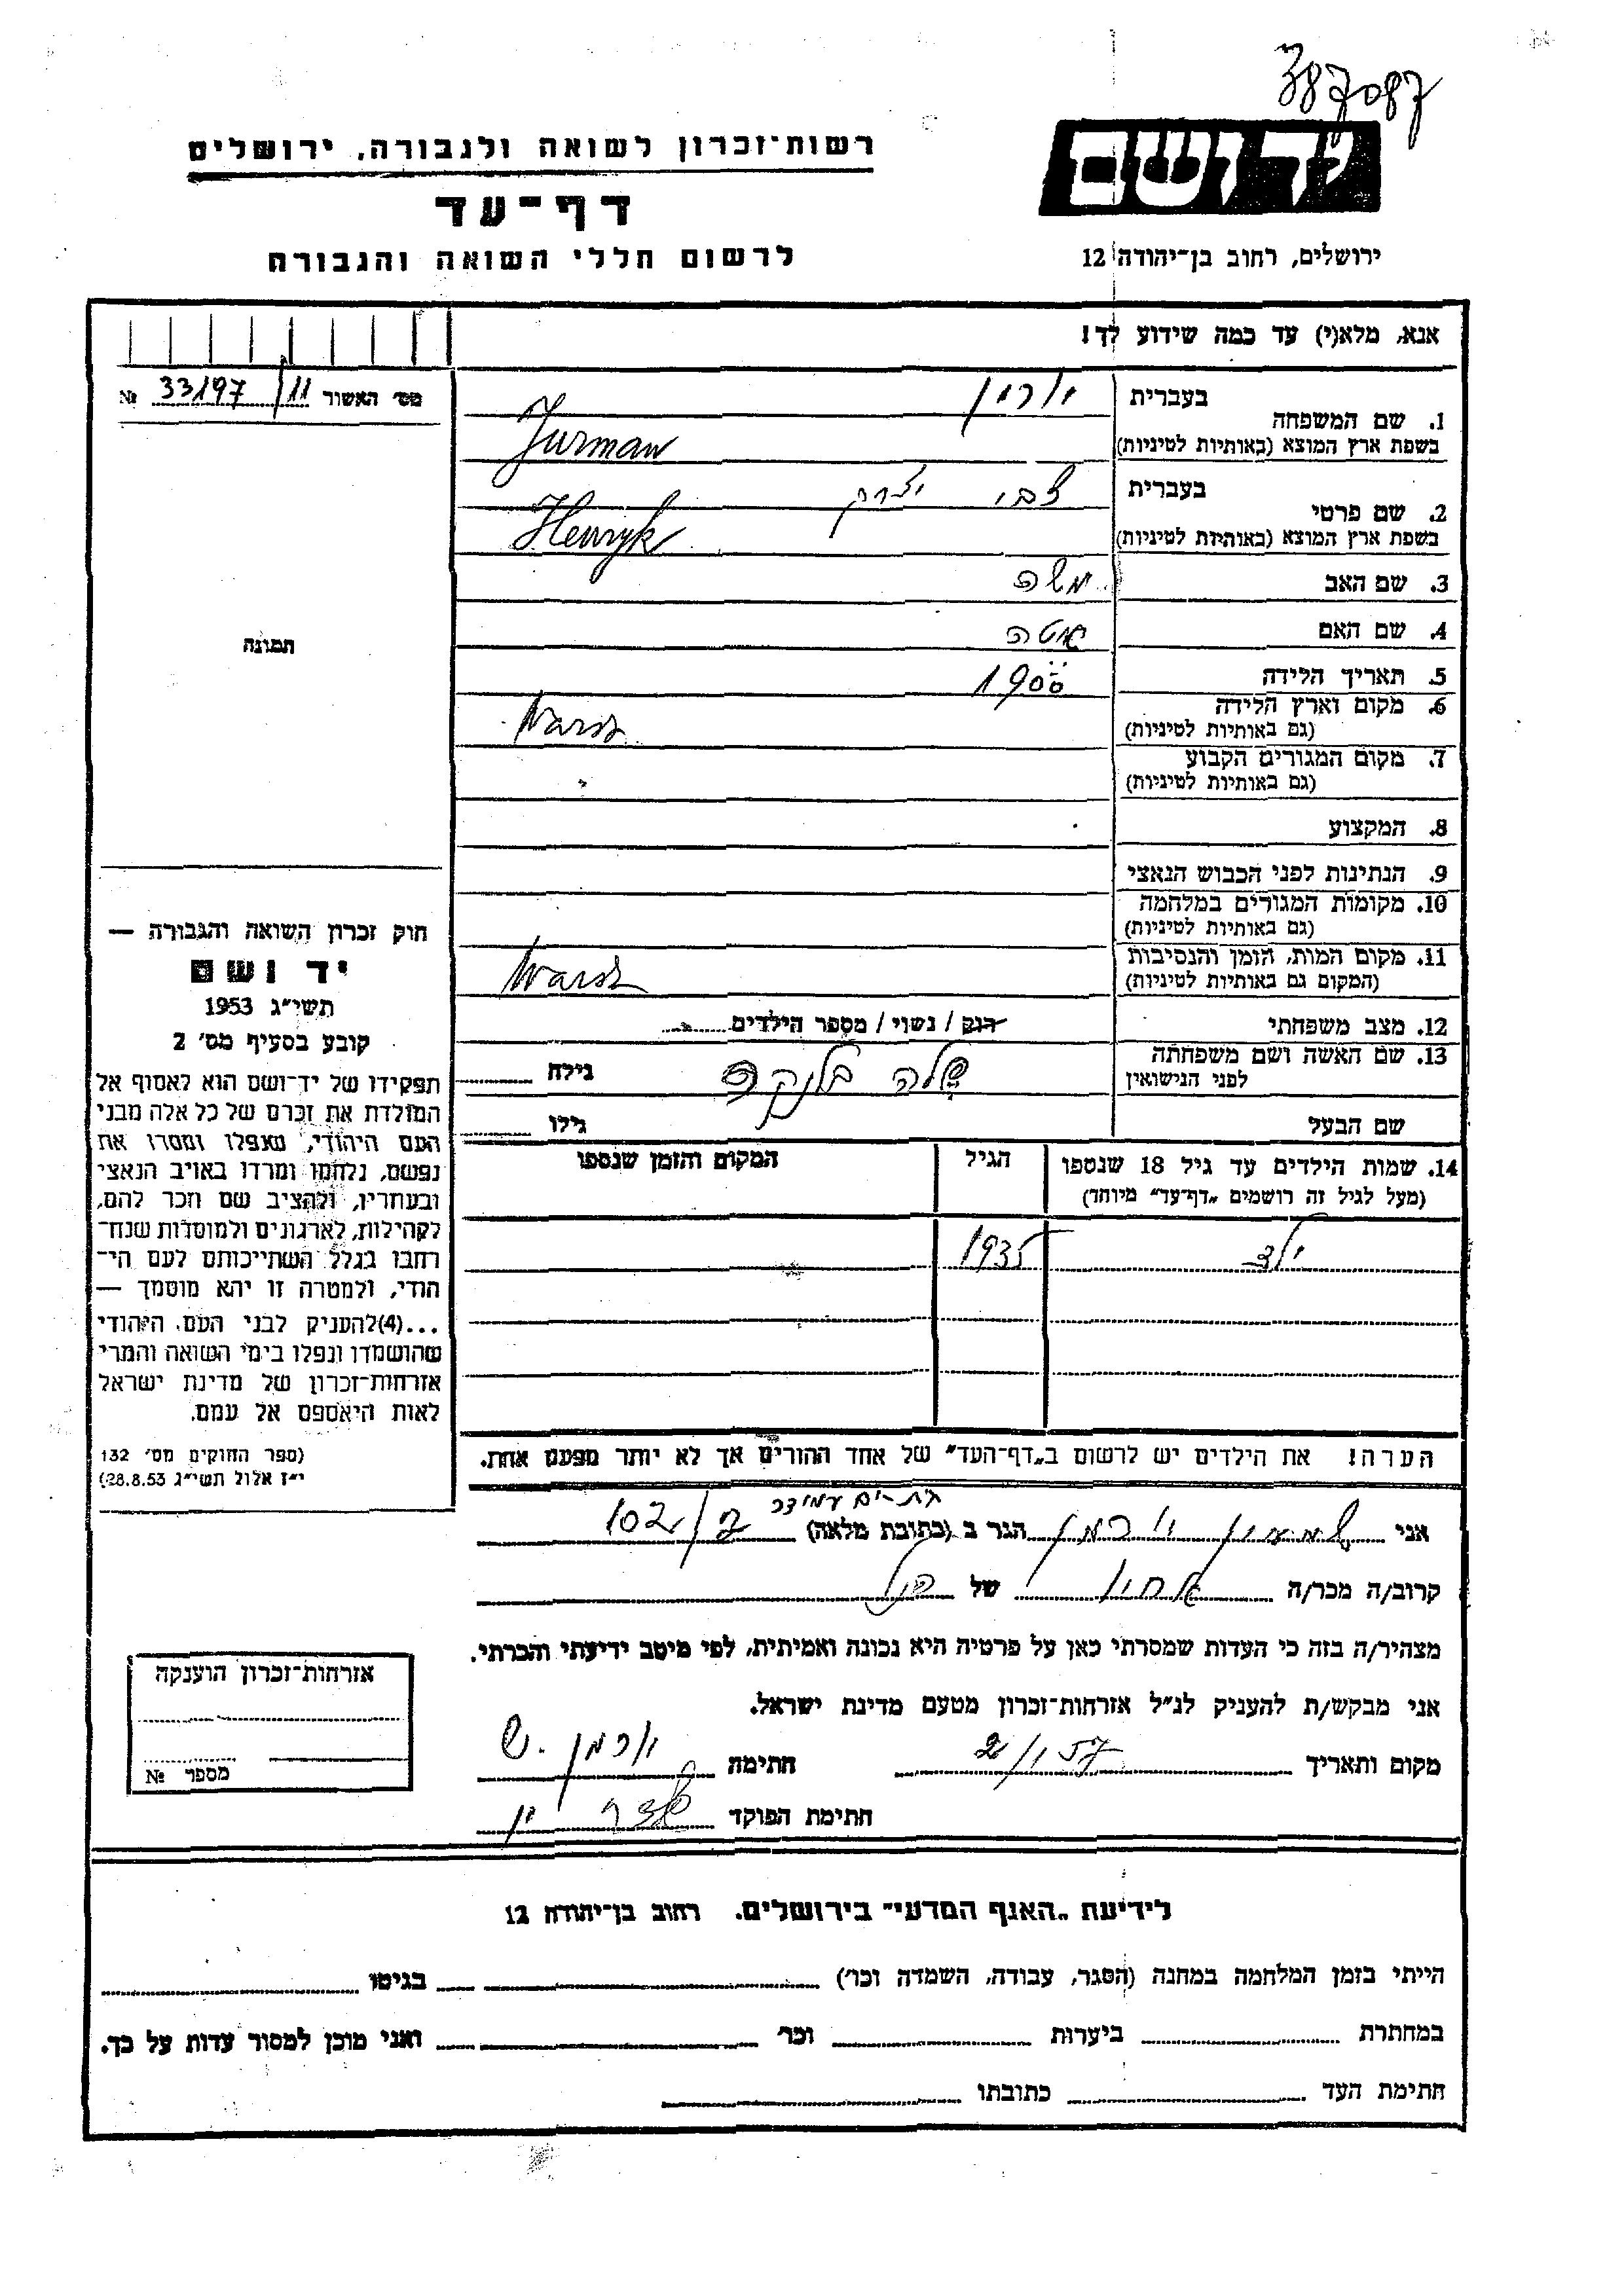 387087
יד ושם
רשות-זכרון לשואה ולגבורה, ירושלים
דף-עד
לרשום חללי השואה והגבורה
ירושלים, רחוב בן-יהודה 12
אנא, מלא(י) עד כמה שידוע לך!
מס' האשור 33197/11 №
תמונה
חוק זכרון השואה והגבורה —
יד ושם
תשי"ג 1953
קובע בסעיף מס' 2
תפקידו של יד-ושם הוא לאסוף אל
המולדת את זכרם של כל אלה מבני
העם היהודי, שנפלו ומסרו את
נפשם, נלחמו ומרדו באויב הנאצי
ובעוזריו, ולהציב שם וזכר להם,
לקהילות, לארגונים ולמוסדות שנח-
רחבו בגלל השתייכותם לעם הי-
הודי, ולמטרה זו יהא מוסמך —
...(4)להעניק לבני העם. היהודי
שהושמדו ונפלו בימי השואה והמרי
אזרחות-זכרון של מדינת ישראל
לאות היאספם אל עמם.
(ספר החוקים מס' 132
י"ז אלול תשי"ג 28.8.53)
1. שם המשפחה
בעברית
בשפת ארץ המוצא (באותיות לטיניות) Jurman
2. שם פרטי
בעברית צבי יצחק
בשפת ארץ המוצא (באותיות לטיניות) Henryk
3. שם האב משה
4. שם האם
5. תאריך הלידה 1900
6. מקום וארץ הלידה Warsz
(גם באותיות לטיניות)
7. מקום המגורים הקבוע
(גם באותיות לטיניות)
8. המקצוע
9. הנתינות לפני הכבוש הנאצי
10. מקומות המגורים במלחמה
(גם באותיות לטיניות)
11. מקום המות, הזמן והנסיבות Warsz
(המקום גם באותיות לטיניות)
12. מצב משפחתי רווק / נשוי / מספר הילדים
13. שם האשה ושם משפחתה
לפני הנישואין גילה
שם הבעל גילו
14. שמות הילדים עד גיל 18 שנספו הגיל המקום והזמן שנספו
(מעל לגיל זה רושמים "דף-עד" מיוחד)
ילד 1935
הערה! את הילדים יש לרשום ב"דף-העד" של אחד ההורים אך לא יותר מפעם אחת.
בת-ים עמידר
אני שמעון יורמן הגר ב (כתובת מלאה) 102/
קרוב/ה מכר/ה אחיו של הנ"ל
מצהיר/ה בזה כי העדות שמסרתי כאן על פרטיה היא נכונה ואמיתית, לפי מיטב ידיעתי והכרתי.
אני מבקש/ת להעניק לנ"ל אזרחות-זכרון מטעם מדינת ישראל.
מקום ותאריך חתימה יורמן ש.
חתימת הפוקד
אזרחות-זכרון הוענקה
מספר №
לידיעת "האגף המדעי" בירושלים. רחוב בן-יהודה 12
הייתי בזמן המלחמה במחנה (הסגר, עבודה, השמדה וכו') בגיטו
במחתרת ביערות וכו' ואני מוכן למסור עדות על כך.
חתימת העד כתובתו